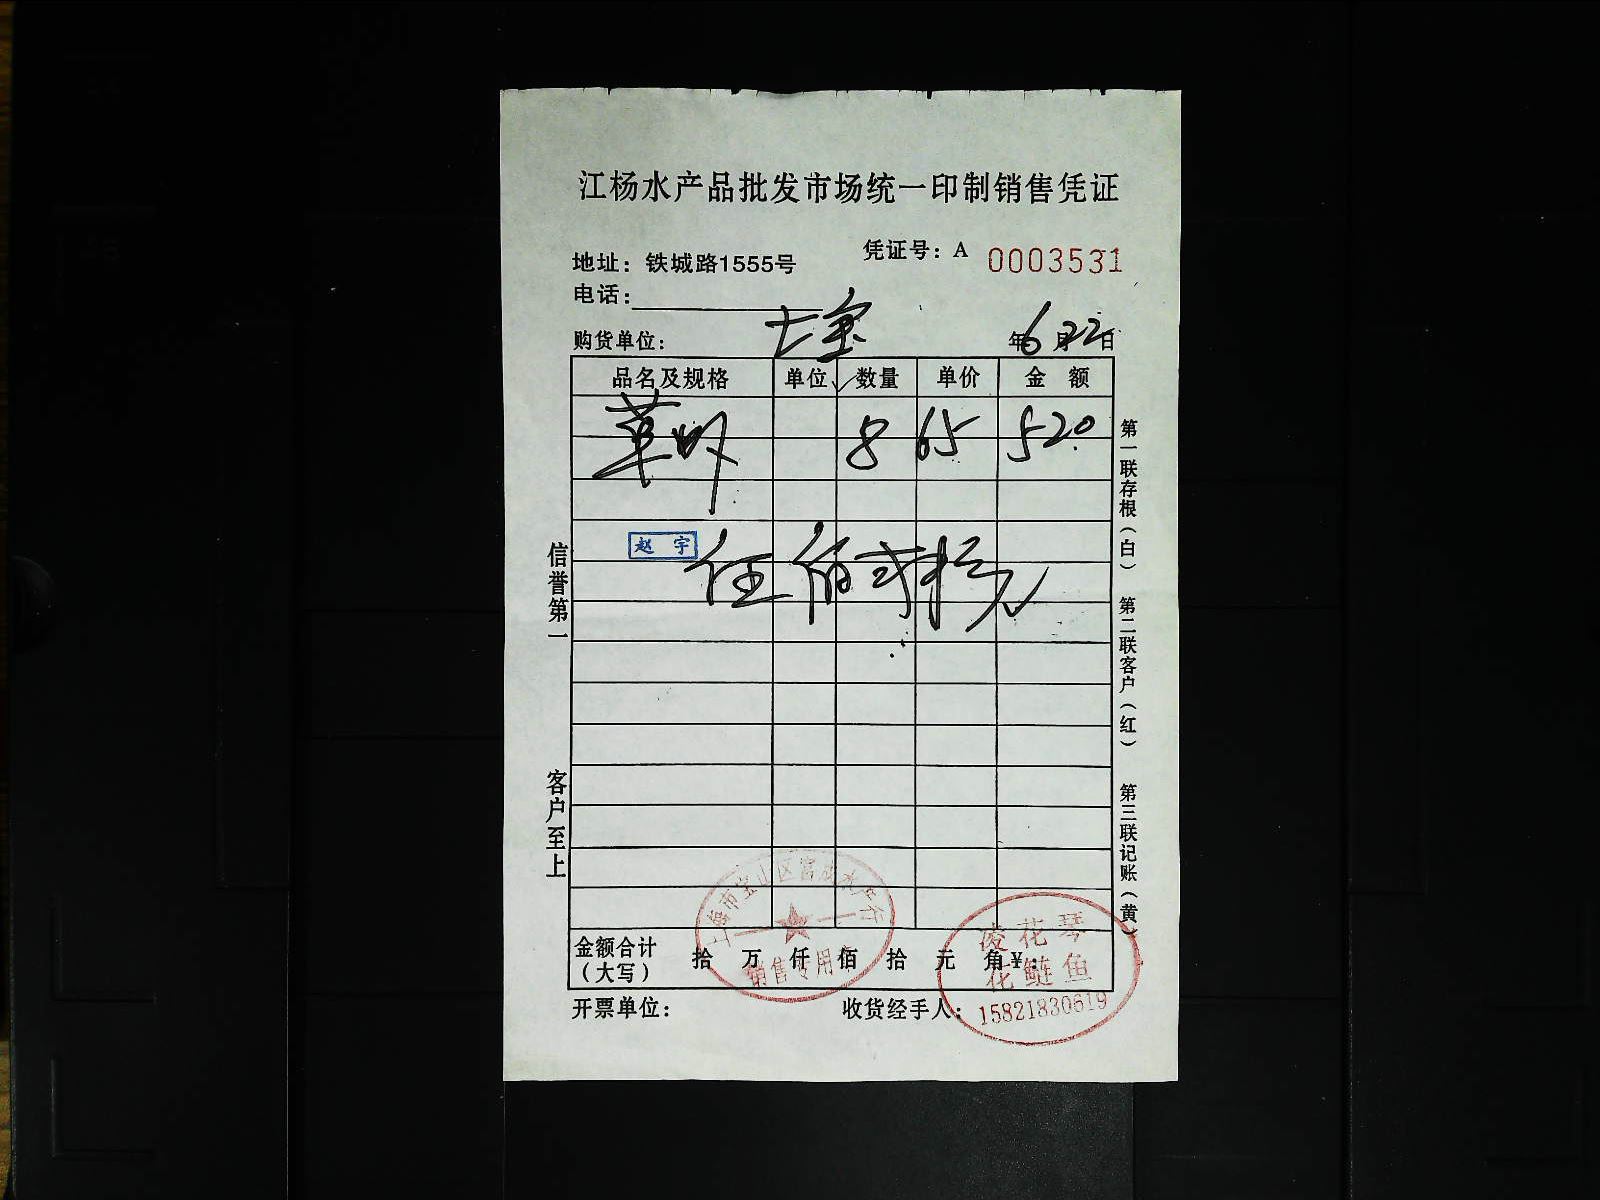 江杨水产品批发市场统一印制销售凭证
凭证号：A 0003531
地址：铁城路1555号
电话：
购货单位： 七宝 年6月22日
品名及规格 单位 数量 单价 金 额
草 8 65 520
赵 宇
伍佰贰拾元
信誉第一
客户至上
第一联存根（白）
第二联客户（红）
第三联记账（黄）
金额合计
（大写） 拾 万 仟 佰 拾 元 角￥：
上海市宝山区 水产行
销售专用
凌花琴
花鲢鱼
15821830619
开票单位： 收货经手人：